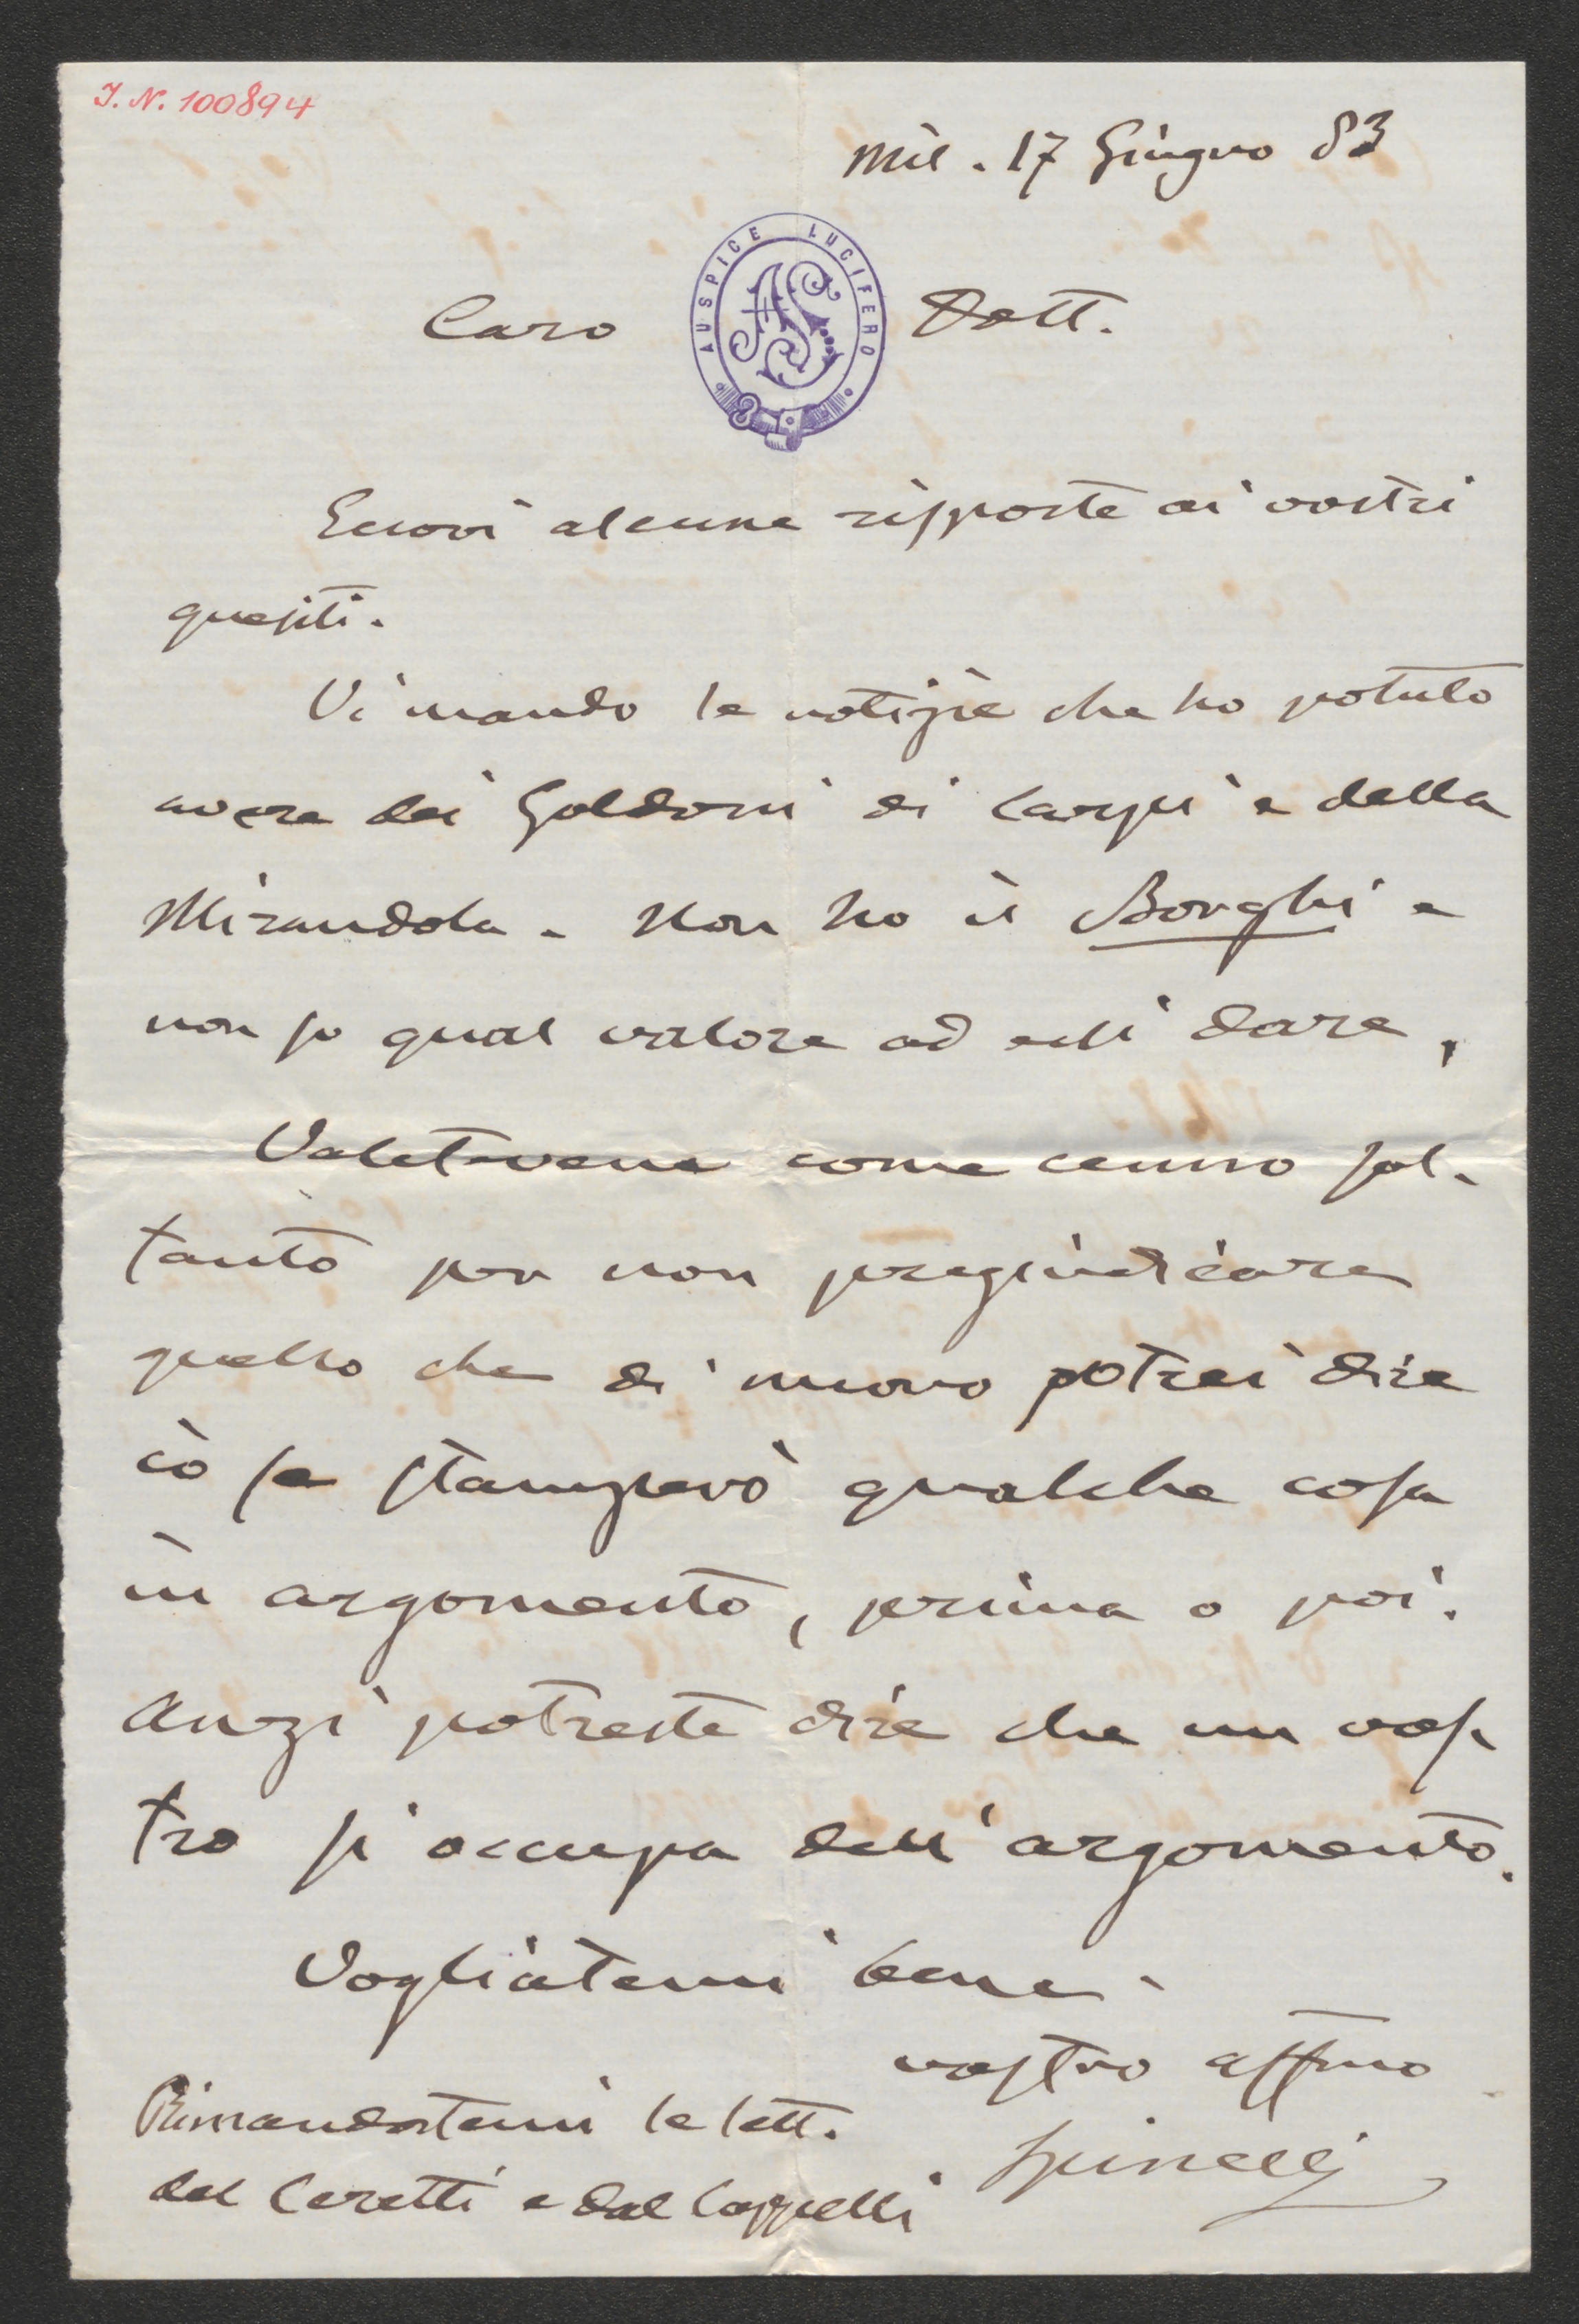 I. N. 100894
Mil. 17 Giugno 83
AUSPICE LUCIFERO
AS
Caro Dott.
Eccovi alcune risposte ai vostri
quesiti.
Vi mando le notizie che ho potuto
avere dei Goldoni di Carpi e della
Mirandola. Non ho il Borghi e
non so qual valore ad essi dare,
Valetevene come cenno sol-
tanto per non pregiudicare
quello che di nuovo potrei dire
io se stamperò qualche cosa
in argomento, prima o poi.
Anzi potreste dire che un vos
tro si occupa dell'argomento.
Vogliatemi bene.
vostro affmo
Spinelli
Rimandatemi le lett.
del Ceretti e del Cappelli